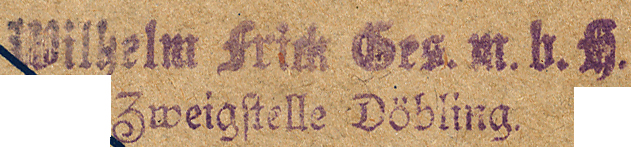 Wilhelm Frick Ges. m. b. H.
Zweigstelle Döbling.